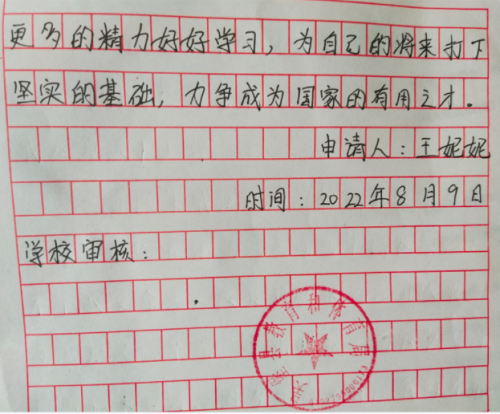 更多的精力好好学习，为自己的将来打下
坚实的基础，力争成为国家的有用之才。
申请人：王妮妮
时间：2022年8月9日
学校审核：
县教育和体育局